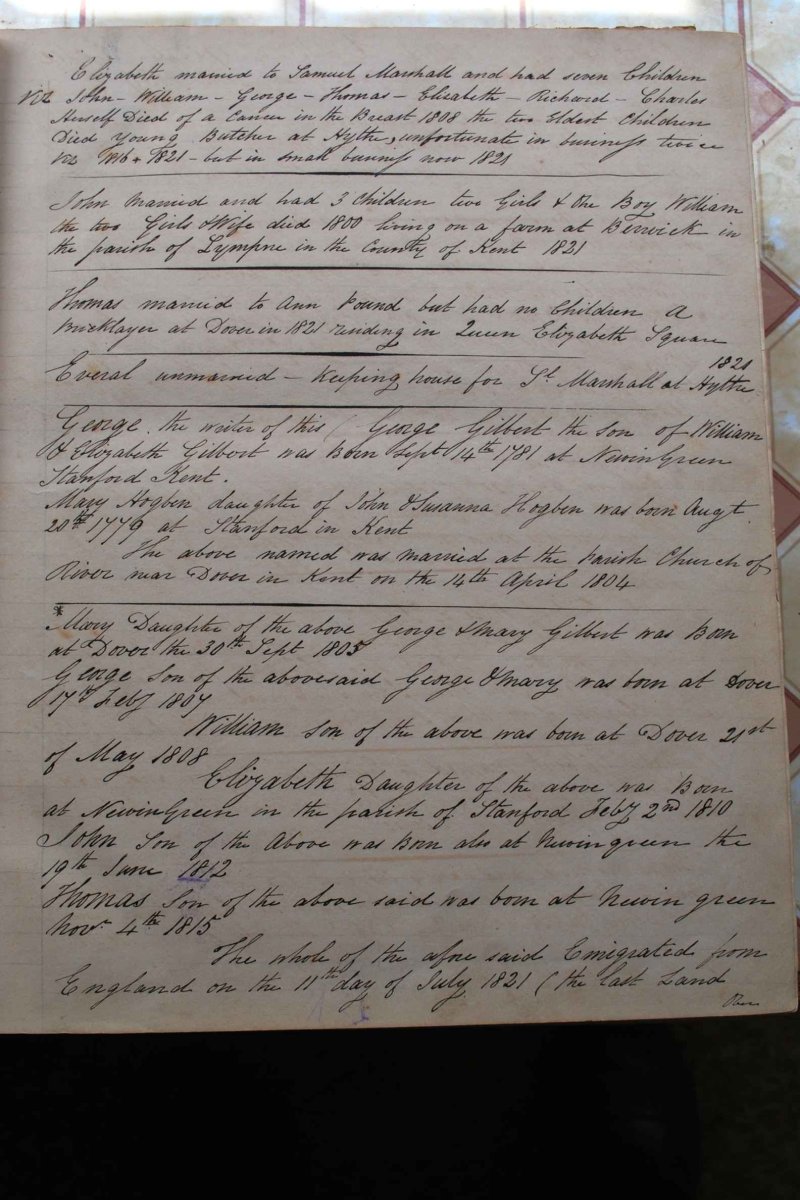 Elizabeth married to Samuel Marshall and had seven Children
Viz John - William - George - Thomas - Elizabeth - Richard - Charles
Herself Died of a Cancer in the Breast 1808 the two Eldest Children
Died Young Butcher at Hythe, unfortunate in business twice
Viz 1816 + 1821 - but in small business now 1821
John Married and had 3 Children two Girls & One Boy William
the two Girls & Wife died 1800 living on a farm at Berwick in
the parish of Lympne in the County of Kent 1821
Thomas married to Ann Pound but had no Children A
Bricklayer at Dover in 1821 residing in Queen Elizabeth Square
1821
Everal unmarried - Keeping house for Sl Marshall at Hythe
George the writer of this ( George Gilbert the Son of William
& Elizabeth Gilbert was Born Sept 14th 1781 at NewinGreen
Stanford Kent.
Mary Hogben daughter of John & Susanna Hogben was born Augt
20th 1779 at Stanford in Kent
The above named was married at the parish Church of
River near Dover in Kent on the 14th April 1804
Mary Daughter of the above George & Mary Gilbert was Born
at Dover the 30th Sept 1805
George Son of the abovesaid George & Mary was born at Dover
17th Feby 1807
William Son of the above was born at Dover 21st
of May 1808
Elizabeth Daughter of the above was Born
at NewinGreen in the parish of Stanford Feby 2nd 1810
John Son of the Above was Born also at Newingreen the
19th June 1812
Thomas Son of the above said was born at Newin green
Novr 4th 1815
The whole of the afore said Emigrated from
England on the 11th day of July 1821 ( the last Land
Over